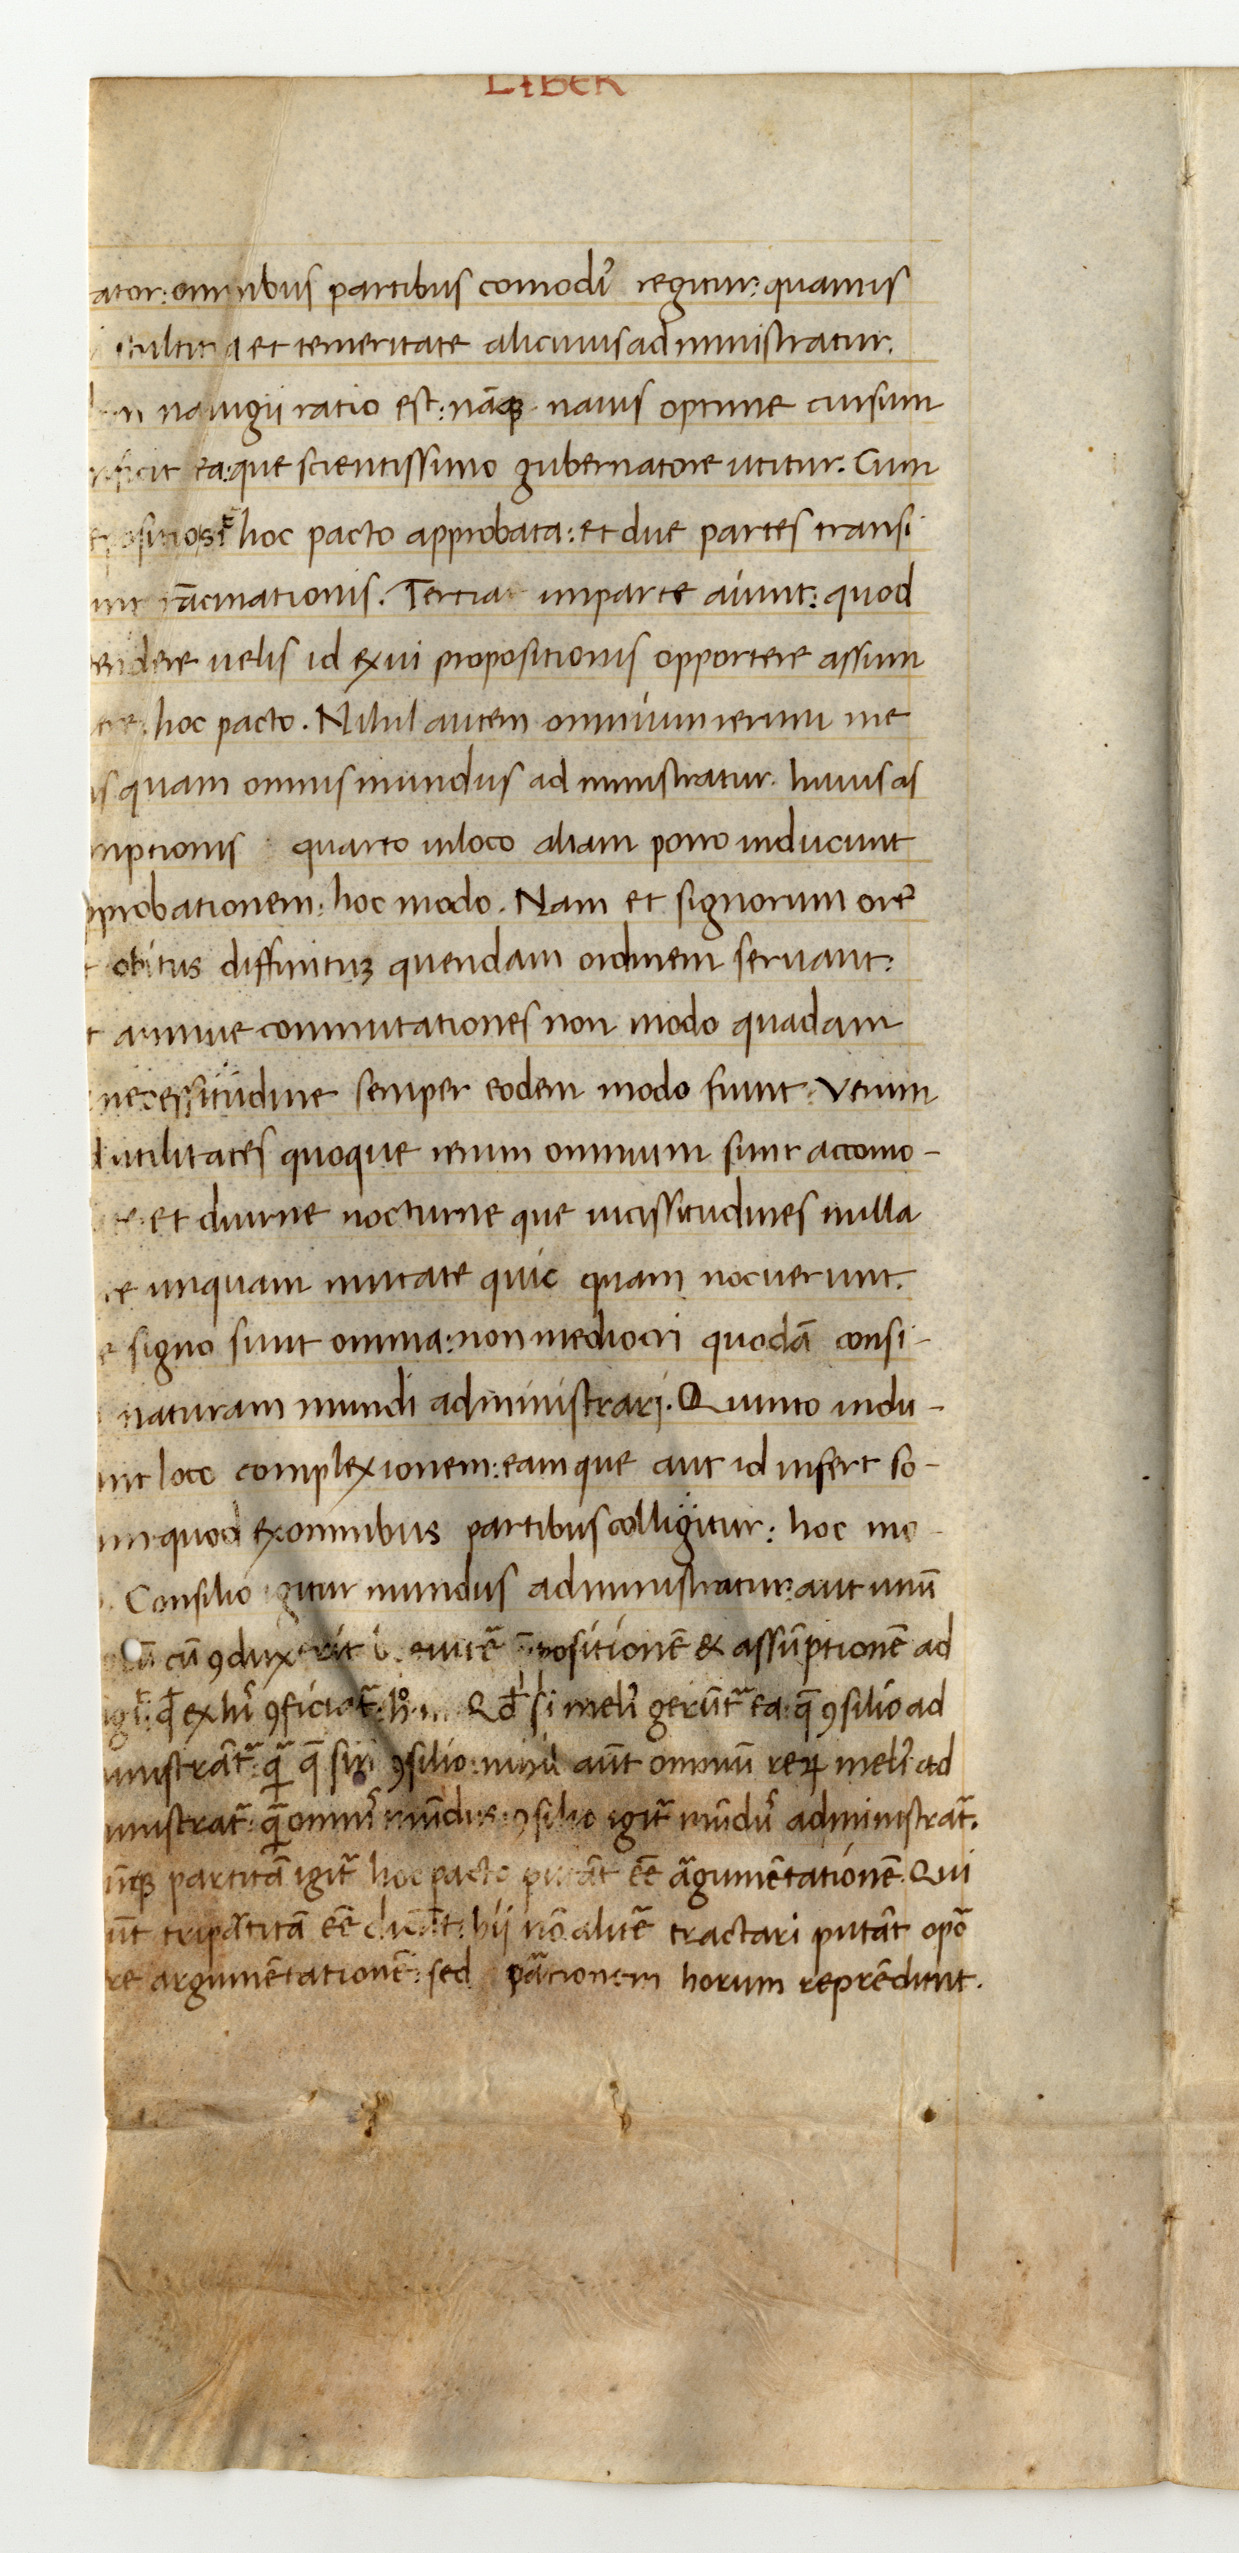 LIBER
ator: omnibus partibus comodĩ regitur: quamis
stultitia et temeritate alicuius administratur.
nauigii ratio est: nãq; nauis optime cursum
ficit ea: que scientissimo gubernatore utitur. Cum
hoc pacto approbata: et due partes transi
unt rãcinationis. Tertiam imparte aiunt: quod
tendere uelis id ex ui propositionis opportere assum
ere: hoc pacto. Nihil autem omnium rerum me
us quam omnis mundus administratur. huius as
mptionis quarto inloco aliam porro inducunt
pprobationem: hoc modo. Nam et signorum orẽ
t obitus diffinitũ quendam ordinem seruant:
t annue conmutationes non modo quadam
necessitudine semper eodem modo fiunt: Verum
d utilitates quoque rerum omnium sunt accomo-
te: et diurne nocturne que uicissitudines nulla
re unquam mutate quic quam nocuerunt.
e signo sunt omnia: non mediocri quodã consi-
naturam mundi administrari. Quinto indu-
unt loco complexionem: eam que aut id infert so-
um quod ex omnibus partibus colligitur: hoc mo-
. Consilio igitur mundus administratur: aut unũ
cũ 9duxerit positionẽ & assũptionẽ ad
ex hĩ 9ficiat̃ Qđ si melĩ gerũt̃ ea: q̃ 9silio ad
ministrãt̃: q̃ q̃ sin 9silio: nihil aũt omniũ reꝝ melĩ ad
ministrat̃: q̃ omnĩ mũdus: 9silio igit̃ mũdĩ administrat̃.
ũq; partitã igit̃ hoc pacto putãt eẽ ãgumẽtationẽ. Qui
ũt tripãtitã eẽ dicũt: hij nõ alitẽ tractari putãt opõ
re argumẽtationẽ: sed pãtionem horum reprẽdunt.